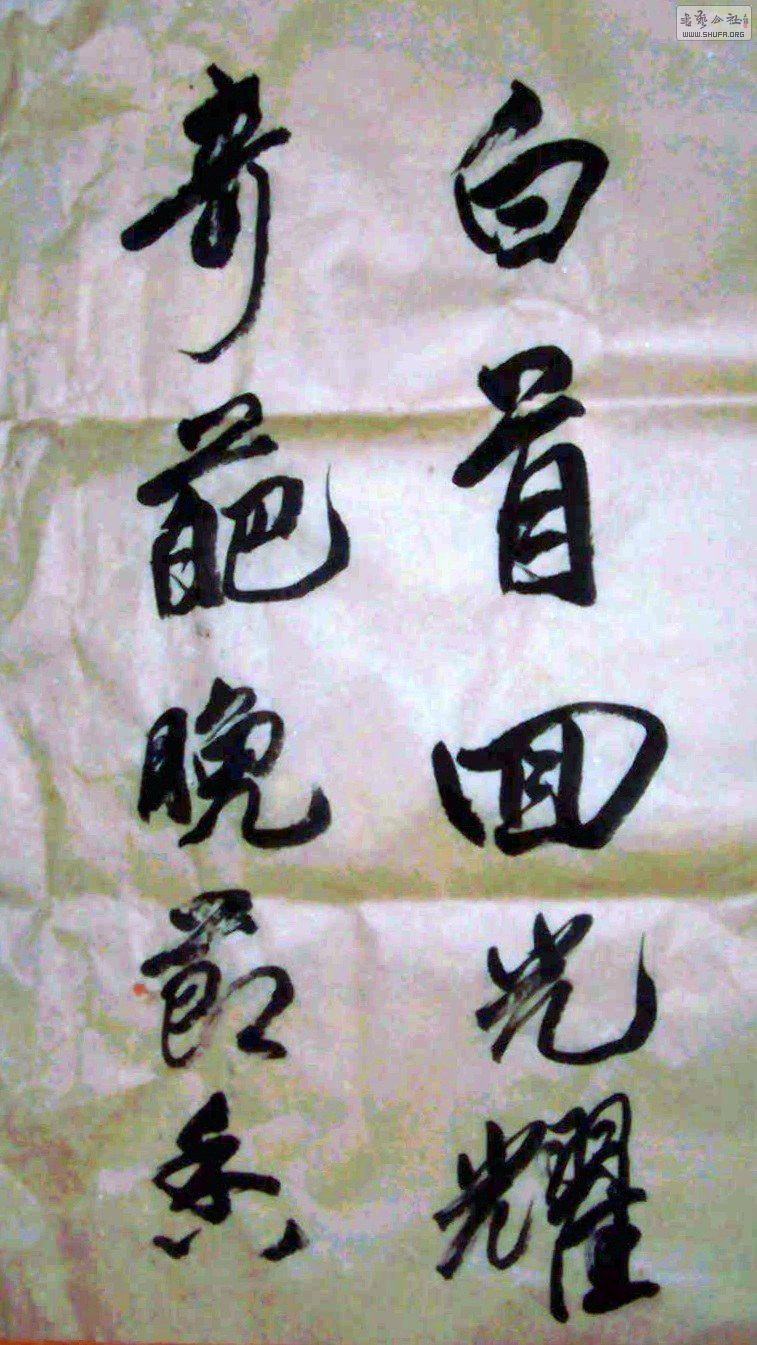 白首回光耀
奇葩晚節香
书艺公社
WWW.SHUFA.ORG